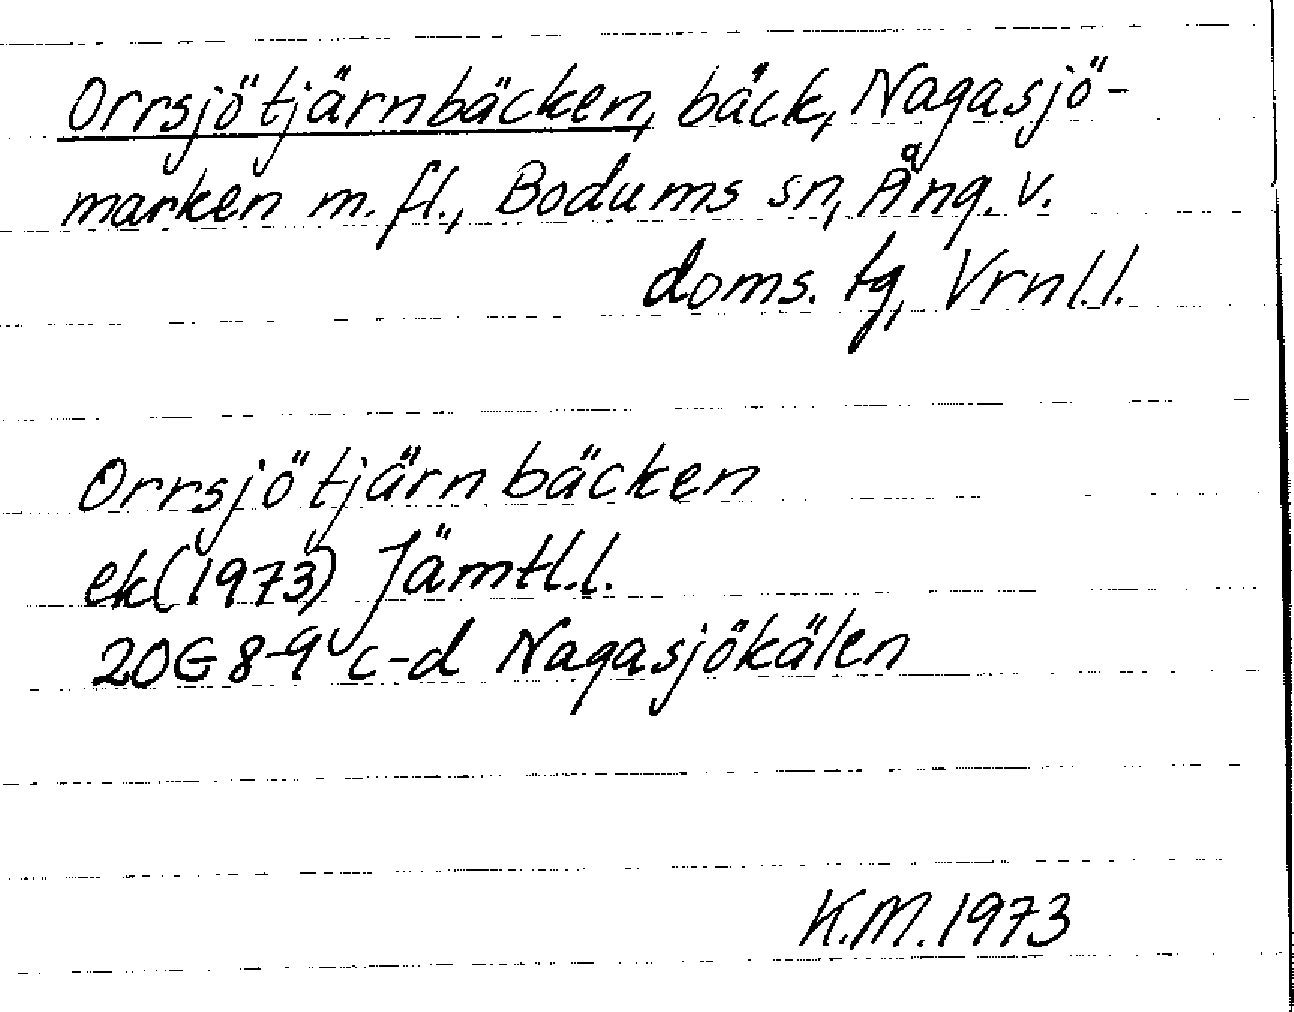 Orrsjötjärnbäcken, bäck, Nagasjö-
marken m. fl., Bodums sn, Ång. v.
doms. tg, Vrnl.l.
Orrsjötjärnbäcken
ek(1973) Jämtl.l.
20G 8-9 c-d Nagasjökälen
K.M. 1973